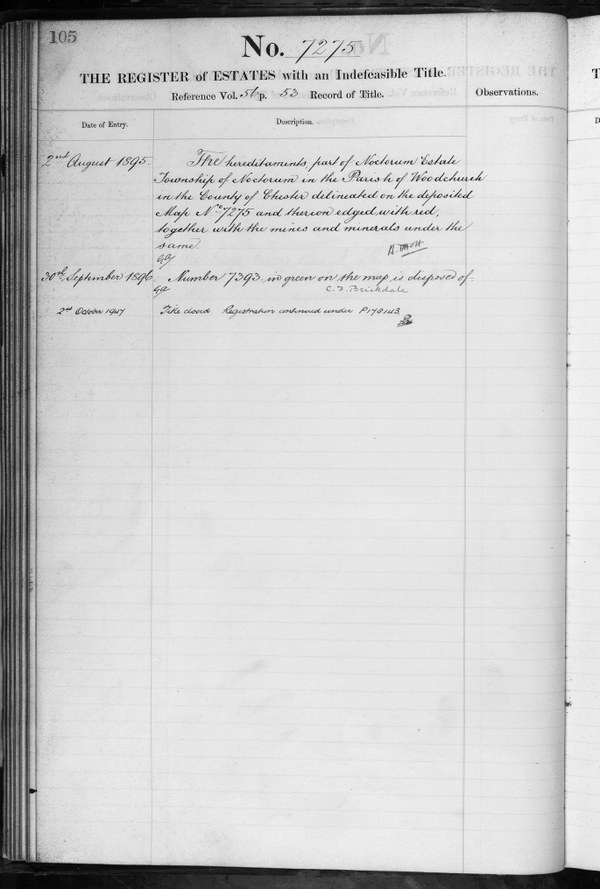 105
No. 7275
THE REGISTER of ESTATES with an Indefeasible Title.
Reference Vol. 56 p. 53 Record of Title.
Observations.
Date of Entry.
Description.
2nd August 1895
The hereditaments, part of Noctorum Estate
Township of Noctorum in the Parish of Woodchurch
in the County of Chester delineated on the deposited
Map No 7275 and thereon edged with red,
together with the mines and minerals under the
same.
30th September 1896
Number 7393 in green on the map is disposed of
C. F. Brickdale
2nd October 1947
Title closed Registration continued under P170143